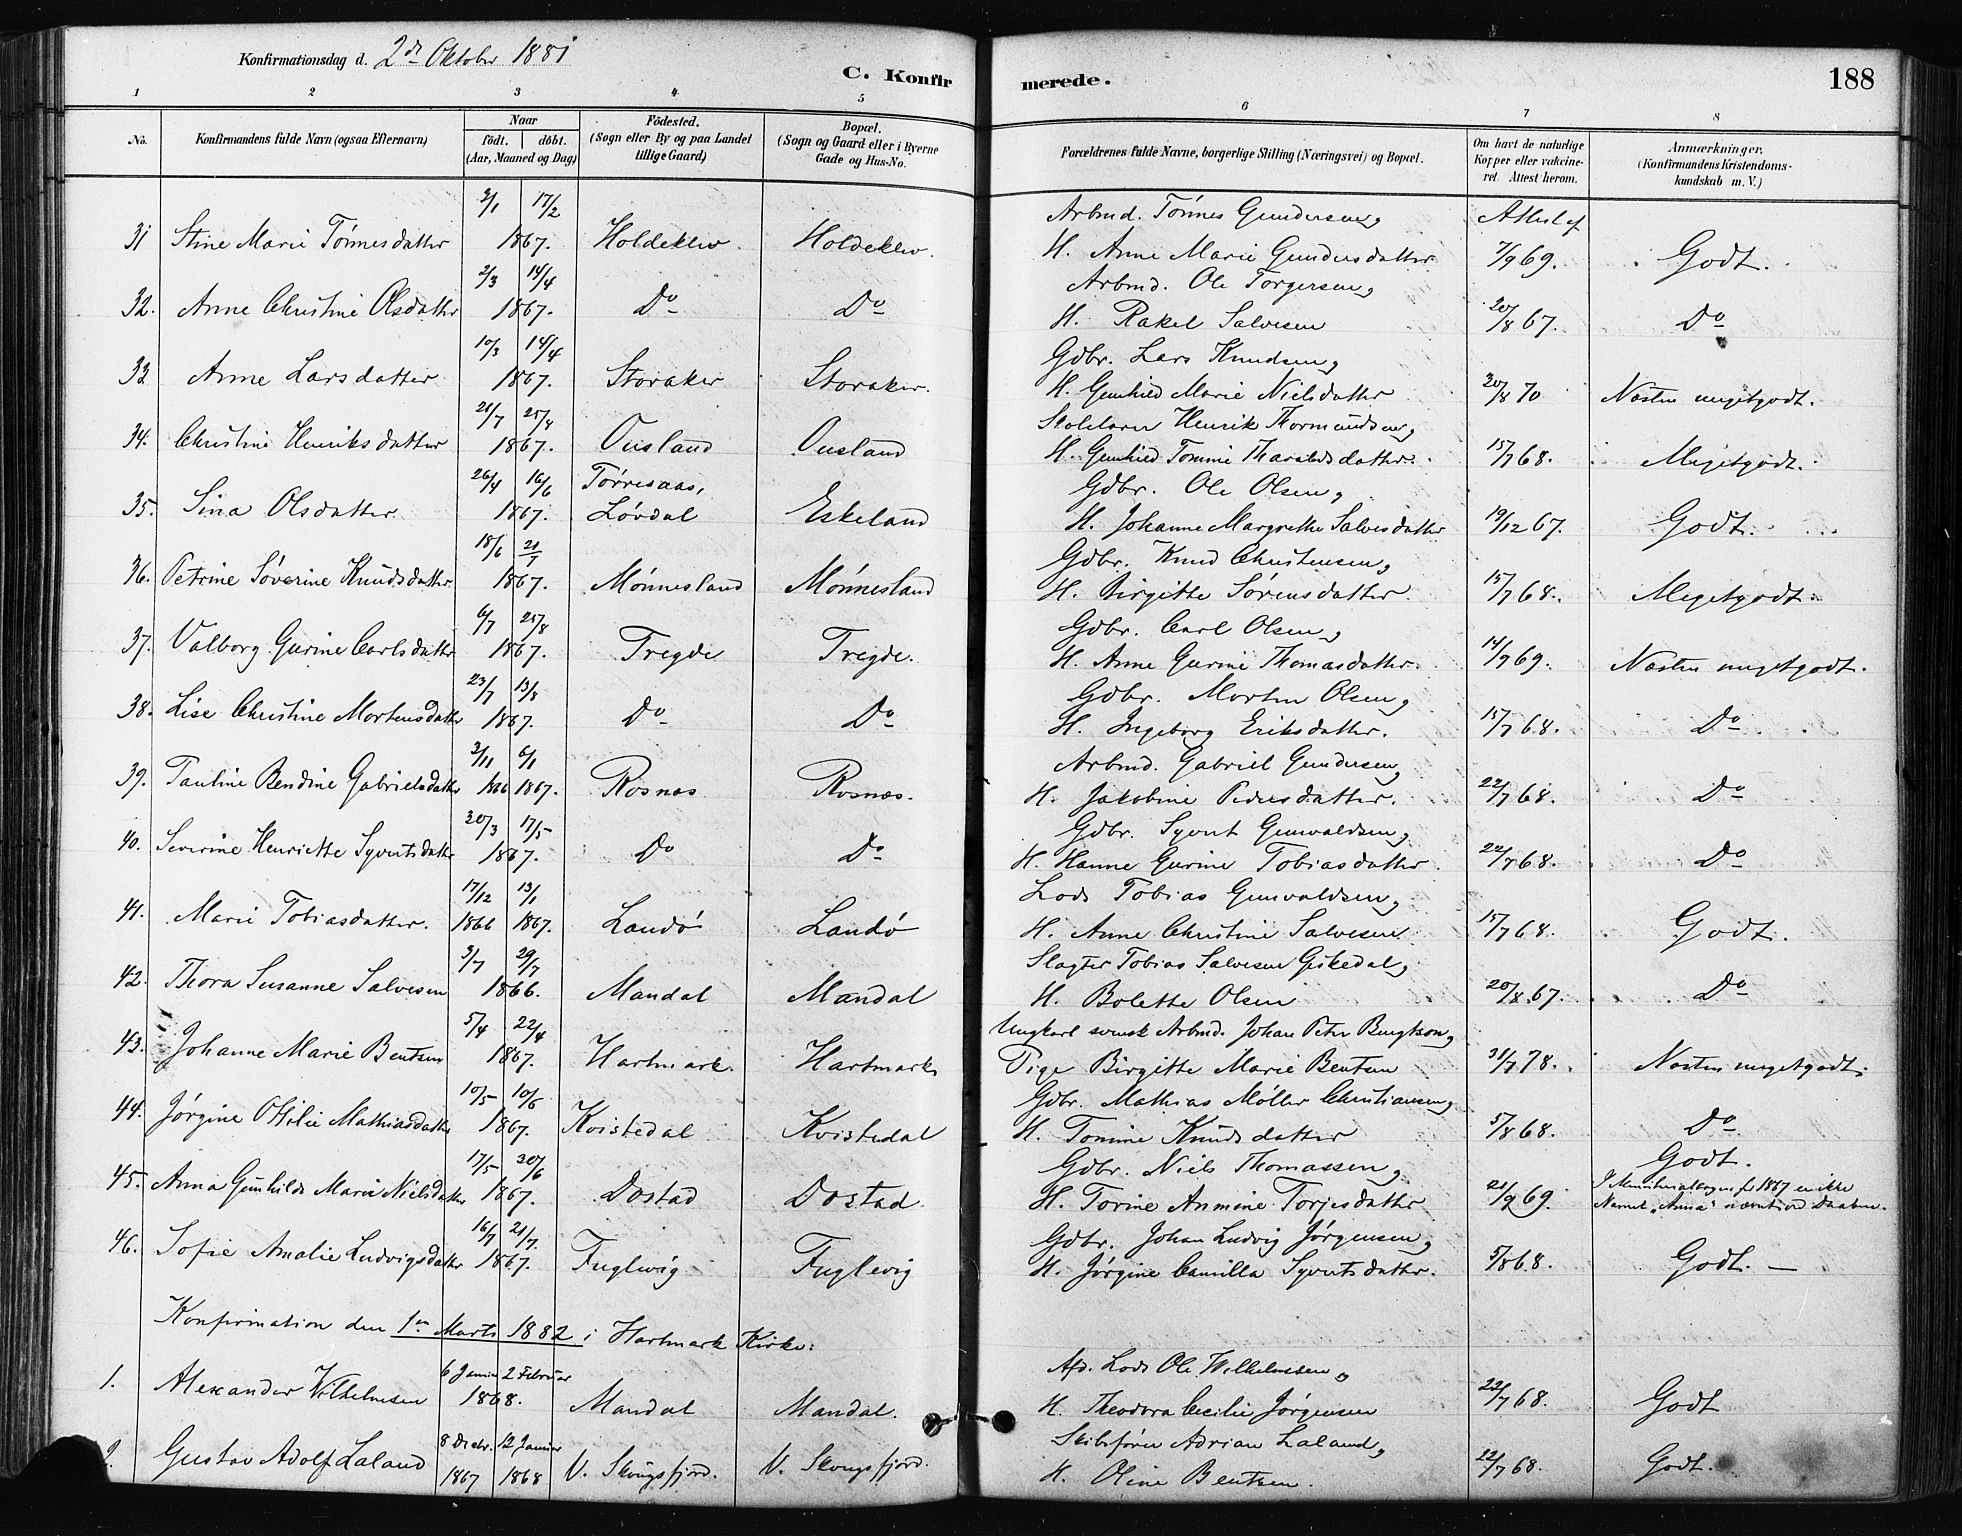 Konfirmationsdag d. 2de Oktober 1881
C. Konfir merede. 188
1 2 3 4 5 6 7 8
No. Konfirmandens fulde Navn (ogsaa Efternavn) Naar födt. döbt. (Aar, Maaned og Dag) Födested. (Sogn eller By og paa Landet tillige Gaard) Bopæl. (Sogn og Gaard eller i Byerne Gade og Hus-No. Forældrenes fulde Navne, borgerlige Stilling (Næringsvei) og Bopæl. Om havt de naturlige Kopper eller vakcineret. Attest herom. Anmærkninger. (Konfirmandens Kristendomskundskab m. V.)
2/1 17/2 Arbmd. Tönnes Gundersen, Attest af
31 Stine Marie Tönnesdatter 1867. Holdeklev. Holdeklev. H. Anne Marie Gundersdatter 7/9 69. Godt.
2/3 14/4 Arbmd. Ole Torgersen,
32. Anne Christine Olsdatter 1867. Do Do H. Rakel Salvesen 20/8 67. Do
10/3 14/4 Gdbr. Lars Knudsen,
33 Anne Larsdatter 1867. Storaker Storaker. H. Gunhild Marie Nielsdatter 30/8 70 Næsten megetgodt.
21/7 25/8 Skolelærer Henrik Thormundsen,
34. Christine Henriksdatter 1867. Ousland Ousland H. Gunhild Tomine Tharaldsdatter. 15/7 68. Megetgodt.
26/4 16/6 Tørresaas, Gdbr. Ole Olsen,
35. Sina Olsdatter. 1867. Lövdal Eskeland H. Johanne Margrethe Salvesdatter 19/12 67. Godt.
18/6 21/7 Gdbr. Knud Christensen,
36. Petrine Söverine Knudsdatter 1867. Mönnesland Mönnesland H. Birgitte Sörensdatter. 15/7 68. Megetgodt.
6/7 25/8 Gdbr. Carl Olsen,
37. Valborg Gurine Carlsdatter 1867. Tregde Tregde. H. Anne Gurine Thomasdatter. 14/9 69. Næsten megetgodt.
23/7 13/8 Gdbr. Morten Olsen,
38. Lise Christine Mortensdatter 1867. Do Do H. Ingeborg Eriksdatter. 15/7 68. Do
2/11 6/1 Arbmd. Gabriel Gundersen,
39. Pauline Bendine Gabrielsdatter 1866 1867. Rosnæs Rosnæs. H. Jakobine Pedersdatter. 22/7 68. Do
20/3 17/5 Gdbr. Syvert Gunvaldsen,
40. Severine Henriette Syvertsdatter 1867. Do Do H. Hanne Gurine Tobiasdatter. 22/7 68. Do
17/12 13/1 Lods Tobias Gunvaldsen,
41. Marie Tobiasdatter. 1866 1867. Landö Landö H. Anne Christine Salvesen 15/7 68. Godt.
3/7 29/7 Slagter Tobias Salvesen Giskedal,
42. Thora Susanne Salvesen 1866. Mandal Mandal H. Bolette Olsen 20/8 67. Do
5/4 22/4 Ungkarl svensk Arbmd. Johan Peter Bengtson,
43. Johanne Marie Bentsen 1867. Hartmark. Hartmark Pige Birgitte Marie Bentsen 31/7 78. Næsten megetgodt.
10/5 10/6 Gdbr. Mathias Möller Christiansen,
44. Jörgine Otilie Mathiasdatter 1867. Kvistedal Kvistedal H. Tomine Knudsdatter 5/8 68. Do
17/5 30/6 Gdbr. Niels Thomassen, Godt.
45. Anna Gunhilde Marie Nielsdatter 1867. Dostad Dostad. H. Torine Anmine Torjesdatter 21/9 69. I Ministerialbogen f. 1867 er ikke Navnet "Anna" nævnt ved Daaben.
16/7 21/7. Gdbr. Johan Ludvig Jörgensen,
46. Sofie Amalie Ludvigsdatter 1867. Fuglevig Fuglevig H. Jörgine Camilla Syvertsdatter. 5/8 68. Godt. —
Konfirmation den 1en Marts 1882 i Hartmark Kirke:
6 Januar 2 Februar Afd. Lods Ole Wilhelmsen,
1. Alexander Wilhelmsen 1868. Mandal Mandal. H. Theodora Cecilie Jörgensen 22/7 68. Godt
8 Decbr. 12 Januar Skibsförer Adrian Laland,
2. Gustav Adolf Laland 1867 1868 V. Skougsfjord. V. Skougsfjord. H. Oline Bentsen. 22/7 68. Godt.